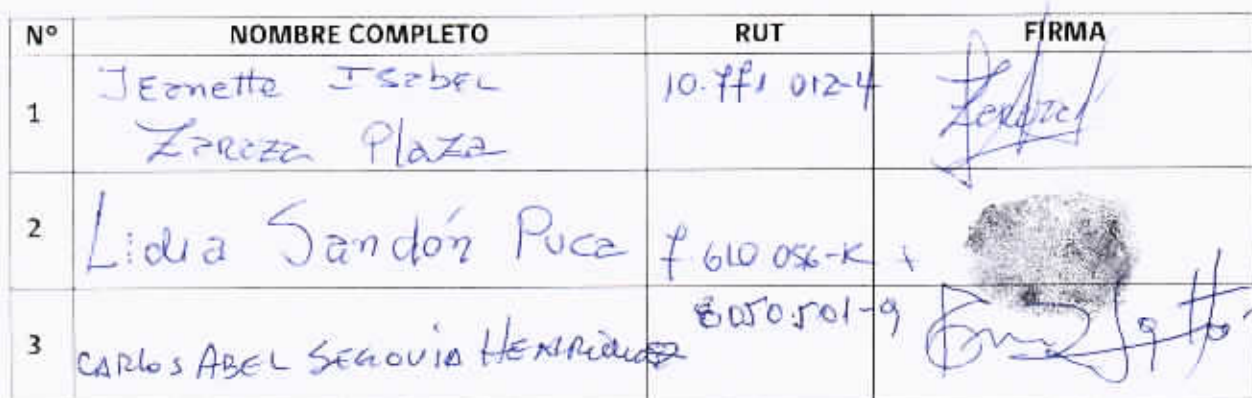 Nº NOMBRE COMPLETO RUT FIRMA
1 JEanette ISabEL 10.771 012-4
Zaraza Plaza
2 Lidia Sandón Puca 7.610 056-K
3 CARLOS ABEL SEGOVIA HENRIQUEZ 8050.501-9